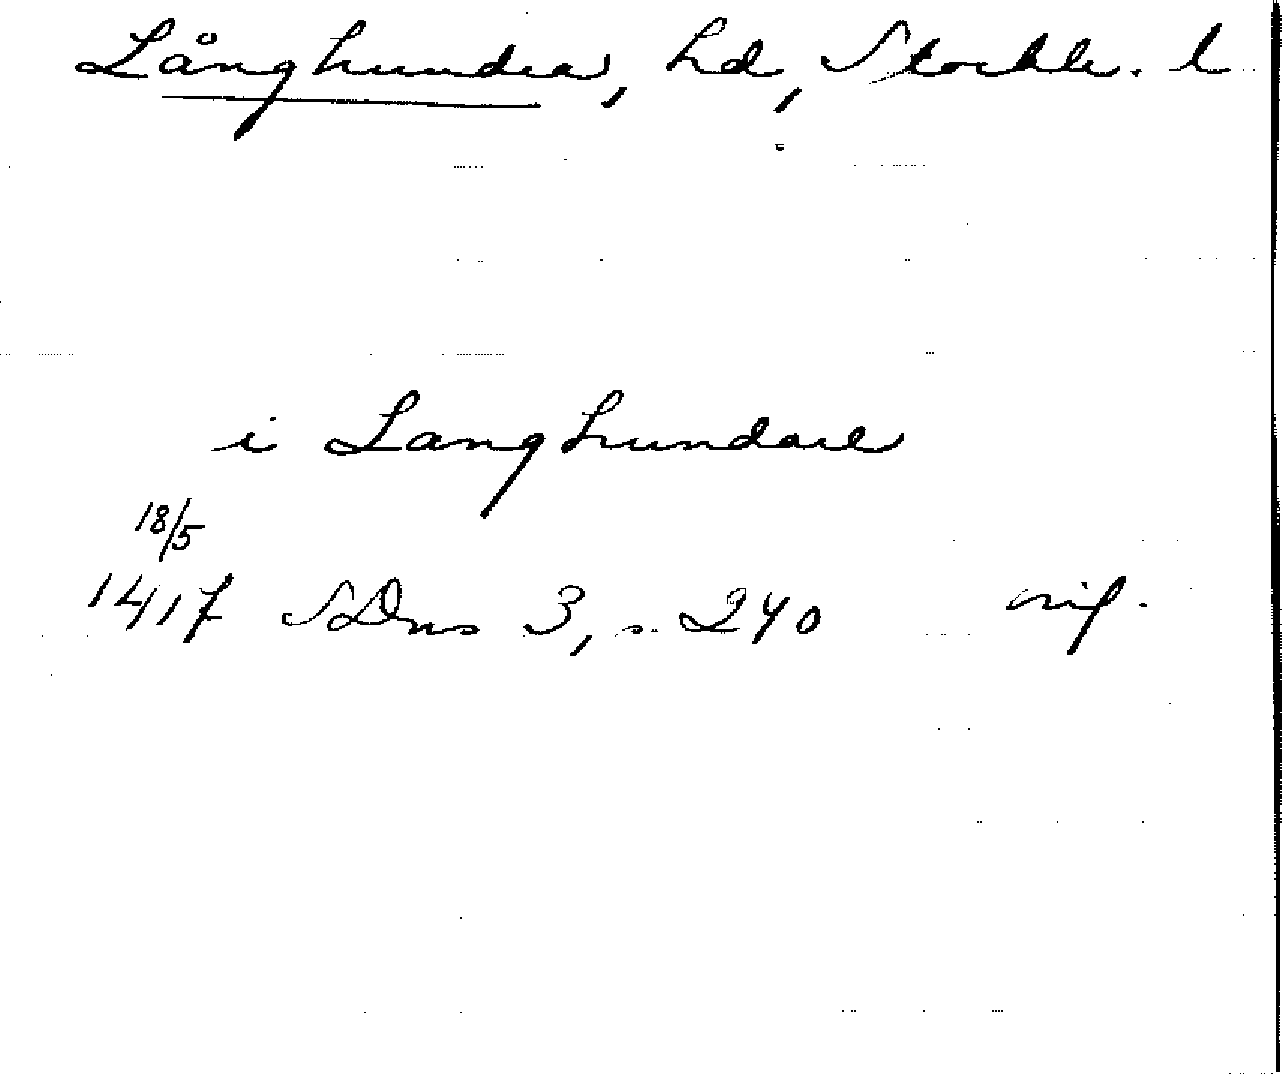 Långhundra, hd, Stockh. l
i Langhundare
18/5
1417 SDns 3, s. 240 orig.